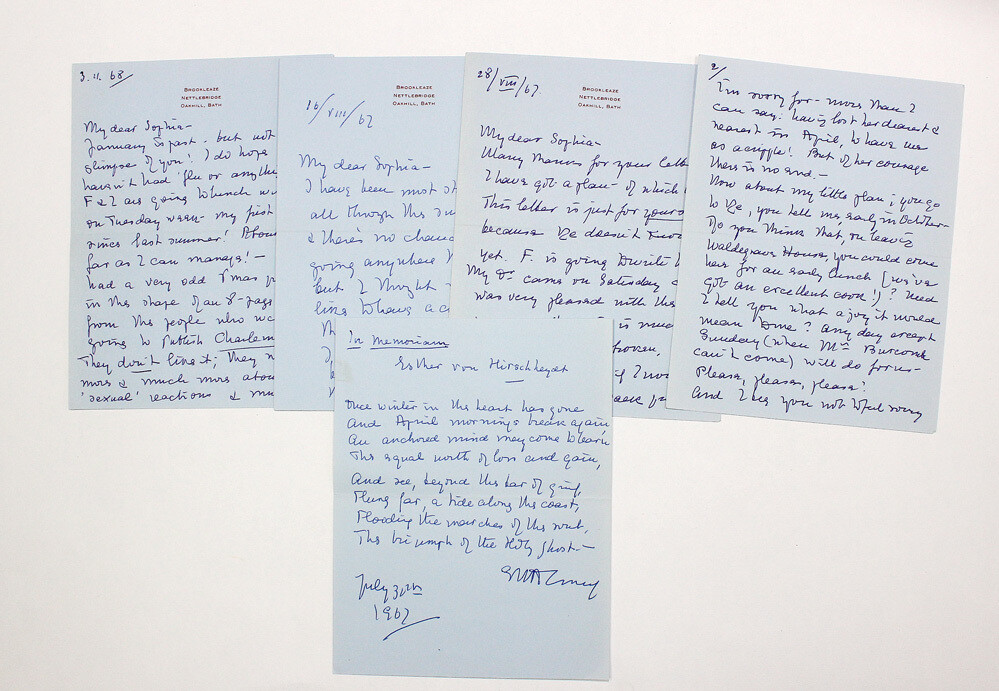 3. II. 68
BROOKLEAZE
NETTLEBRIDGE
OAKHILL, BATH
My dear Sophia—
January is past - but not
glimpse of you! I do hope
haven't had 'flu or anythi
F & I are going to lunch wi
on Tuesday week - my first
since last summer!
far as I can manage! —
had a very odd Xmas p
in the shape of an 8-page
from the people who we
going to publish Charlem
They don't like it; they w
more & much more abou
'sexual' reactions & mu
BROOKLEAZE
NETTLEBRIDGE
OAKHILL, BATH
16/VIII/67
My dear Sophia—
I have been most st
all through this su
& there's no chanc
going anywhere
but I thought
28/VIII/67.
BROOKLEAZE
NETTLEBRIDGE
OAKHILL, BATH
My dear Sophia—
Many thanks for your lette
I have got a plan - of which
This letter is just for yours
because doesn't know
yet. F. is going
My Dr came on Saturday
was very pleased with the
is muc
2/
I'm sorry for - more than I
can say: having lost her dearest &
nearest in April, to have
as a cripple! But of her courage
there is no end. —
Now about my little plan; you go
to you tell me, early in October -
Do you think that, on leaving
Waldegrave House, you could come
here for an early lunch (we've
got an excellent cook!)? Need
I tell you what a joy it would
mean to me? Any day except
Sunday (when Mrs
can't come) will do for us -
Please, please, please!
And I beg you not to
In Memoriam
Esther von Hirschheydt
Once winter in the heart has gone
And April mornings break again,
An anchored mind may come to learn
The equal worth of loss and gain,
And see, beyond the bar of grief,
Flung far, a tide along the coast,
Flooding the marches of the
The triumph of the Holy Ghost —
July 30th
1967